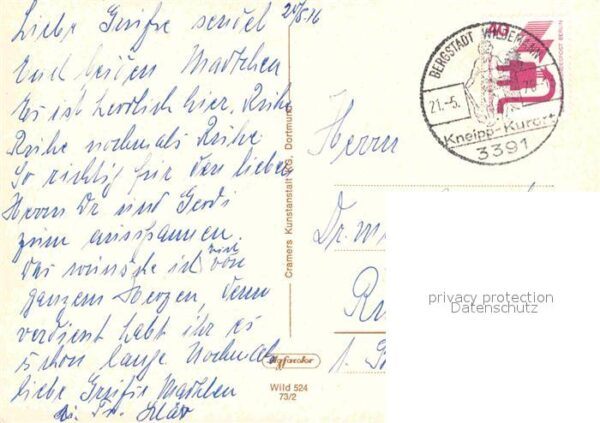 Liebe Grüße sendet 20/5 76
Euch beiden Mädchen
Es ist herrlich hier. Ruhe
Ruhe nochmals Ruhe
So richtig für den lieben
Herrn Dr und Gerdi
zum ausspannen.
Das wünsche ich von
ganzem Herzen, denn
verdient habt ihr es
schon lange Nochmals
liebe Grüße Mädchen
Fr.
Herrn
Dr. m
1.
BERGSTADT WILDEMANN
21.-5.
Kneipp-Kurort
3391
40
DEUTSCHE BUNDESPOST BERLIN
Cramers Kunstanstalt KG, Dortmund
Agfacolor
Wild 524
73/2
privacy protection
Datenschutz